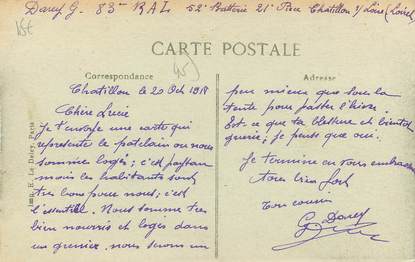 Darcy G. 83e R.A.L. 52e Batterie 21e Pièce Chatillon s/ Loire (Loiret)
15€
CARTE POSTALE
Correspondance
Adresse
Chatillon le 20 Oct 1918
Chère Lucie
Je t'envoye une carte qui
représente le patelin ou nous
sommes logés; c'est
mais les habitants sont
très bons pour nous; c'est
l'essentiel. Nous sommes très
bien nourris et logés dans
un grenier, nous serons un
peu mieux que sous la
tente pour passer l'hiver.
Est ce que ta blessure et bientot
guerie; je pense que oui.
Je termine en vous embrassant
tous bien fort
Ton cousin
G Darcy
Imp. E. Le Deley, Paris